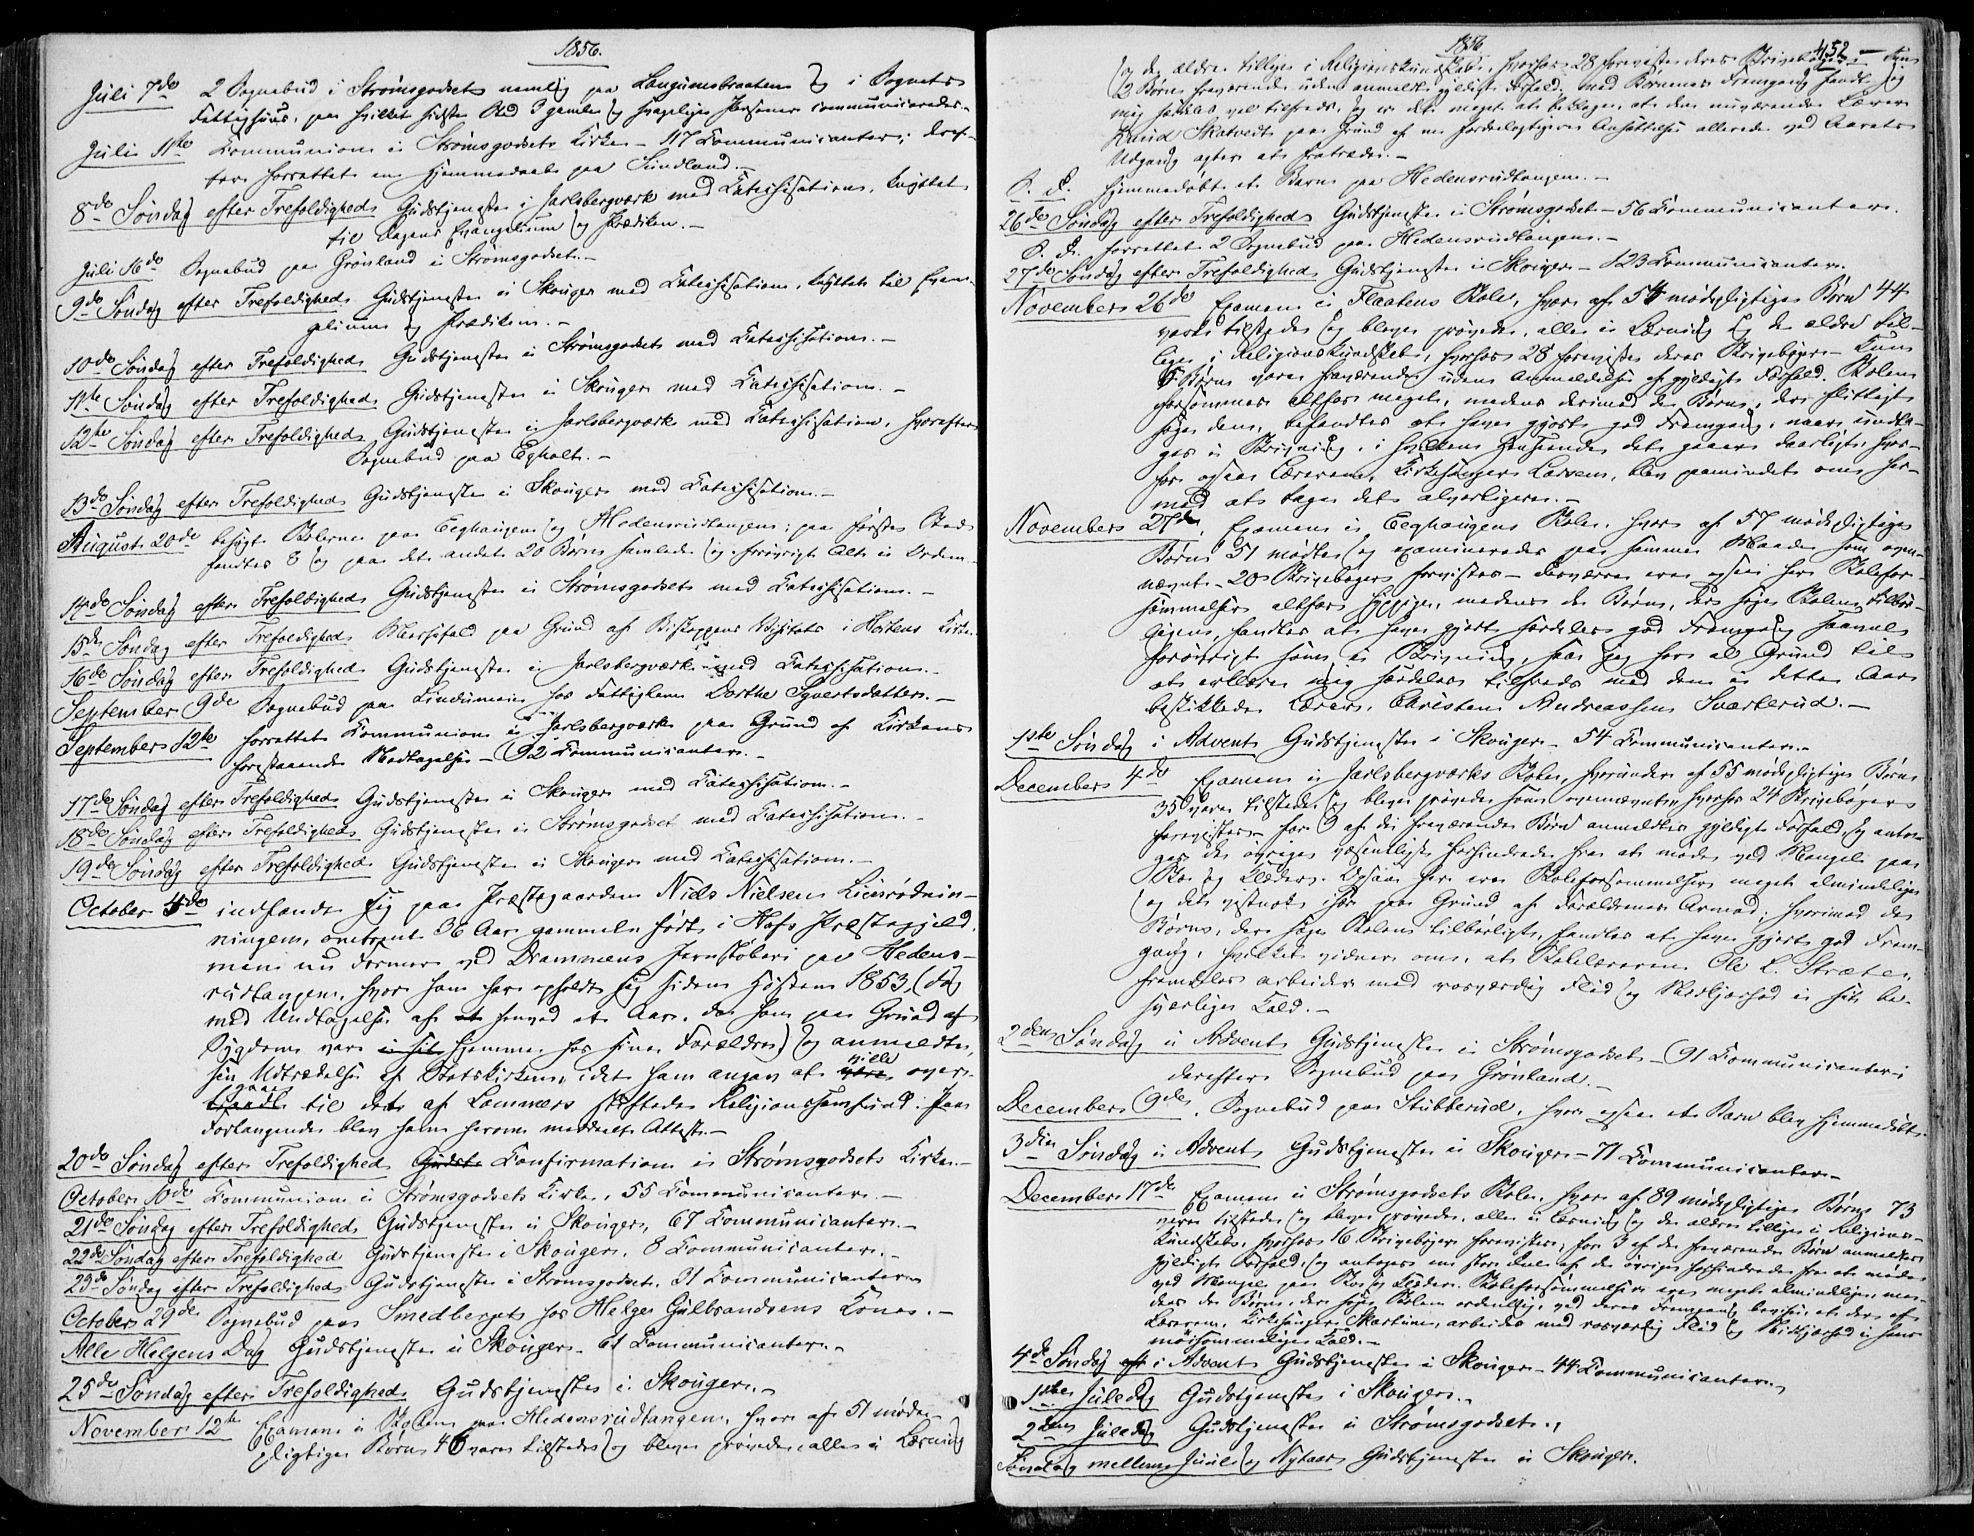 1856.
Juli 7de 2 Sognebud i Strømsgodset nemlig paa Langumsbraaten og i Sognets
Fattighuus, paa hvilket sidste Sted 3 gamle og svagelige Personer communicerede.
Juli 11te Communion i Strømsgodsets Kirke – 117 Communicanter; 
forrettet en Hjemmedaab paa Sundland.
8de Søndag efter Trefoldighed Gudstjeneste i Jarlsbergværk med Catechisation, knyttet
til Dagens Evangelium og Prædiken.
Juli 16de Sognebud paa Grønland i Strømsgodset.
9de Søndag efter Trefoldighed Gudstjeneste i Skouger med Catechisation, knyttet til Evan-
gelium og Prædiken.
10de Søndag efter Trefoldighed Gudstjeneste i Strømsgodset med Catechisation.
11te Søndag efter Trefoldighed Gudstjeneste i Skouger med Catechisation.
12te Søndag efter Trefoldighed Gudstjeneste i Jarlsbergværk med Catechisation, hvorefter
Sognebud paa Egholt.
13de Søndag efter Trefoldighed Gudstjeneste i Skouger med Catechisation.
August 20de besøgt Skolerne paa Eeghaugen og Hedensrudtangen; paa første Sted
fandtes 8 og paa det andet 20 Børn samlede og forøvrigt Alt i Orden.
14de Søndag efter Trefoldighed Gudstjeneste i Strømsgodset med Catechisation.
15de Søndag efter Trefoldighed Messefald paa Grund af Biskoppens Visitats i Hortens Kirke.
16de Søndag efter Trefoldighed Gudstjeneste i Jarlsbergværk med Catechisation.
September 9de Sognebud paa Lindumeie hos Fattiglem Dorthe Syvertsdatter.
September 12te forrettet Communion i Jarlsbergværk paa Grund af Kirkens
forestaaende Nedtagelse – 92 Communicanter.
17de Søndag efter Trefoldighed Gudstjeneste i Skouger med Catechisation.
18de Søndag efter Trefoldighed Gudstjeneste i Strømsgodset med Catechisation.
19de Søndag efter Trefoldighed Gudstjeneste i Skouger med Catechisation.
October 4de indfandt sig paa Præstegaarden Niels Nielsen Liersrødnin-
ningen, omtrent 36 Aar gammel født i Hofs Præstegjeld,
men nu Former ved Drammens Jernstøberi paa Hedens-
rudtangen, hvor han har opholdt sig siden Høsten 1853, (dog
med Undtagelse af et henved et Aar, da han paa Grund af
Sygdom var i sit hjemme hos sine Forældre) og anmeldte
sin Udtrædelse af Statskirken, idet han angav at være ville over-
gaae til det af Lammers stiftede Religionssamfund. Paa
Forlangende blev ham herom meddeelt Attest.
20de Søndag efter Trefoldighed Gudstj. Confirmation i Strømsgodsets Kirke.
October 10de Communion i Strømsgodsets Kirke, 55 Communicanter.
21de Søndag efter Trefoldighed Gudstjeneste i Skouger, 67 Communicanter.
22de Søndag efter Trefoldighed Gudstjeneste i Skouger. 8 Communicanter.
23de Søndag efter Trefoldighed Gudstjeneste i Strømsgodset. 31 Communicanter
October 29de Sognebud paa Smedberget hos Helge Gulbrandsens Kone.
Alle Helgens Dag Gudstjeneste i Skouger. 61 Communicanter.
25de Søndag efter Trefoldighed Gudstjeneste i Skouger.
November 12te Examen i Skolen paa Hedensrudtangen, hvor af 51 møde-
pligtige Børn 46 vare tilstede og bleve prøvede alle i Læsning
1856
452
og de ældre tillige i Religionskundskab, hvorhos 28 foreviste deres Skrivebøger. Kun
2 Børn fraværende uden anmeldt gyldigt Forfald. Med Børnenes Fremgang fandt jeg
mig særdeles vel tilfreds, og er det meget at beklage, at den nuværende Lærer
Knud Skatvedt paa Grund af en fordeelagtigere Ansættelse allerede ved Aarets
Udgang agter at fratræde.
S. D. hjemmedøbt et Barn paa Hedensrudtangen.
26de Søndag efter Trefoldighed Gudstjeneste i Strømsgodset – 56 Communicanter.
S. D. forrettet 2 Sognebud paa Hedensrudtangen.
27de Søndag efter Trefoldighed Gudstjeneste i Skouger – 123 Communicanter.
November 26de Examen i Flaatens Skole, hvor af 54 mødepligtige Børn 44
vare tilstede og bleve prøvede, alle i Læsning og de ældre til-
lige i Religionskundskab, hvorhos 28 foreviste deres Skrivebøger. Kun
5 Børn vare fraværende uden Anmeldelse af gyldigt Forfald. Skolen
forsømmes altfor meget, medens derimod de Børn, der flittigt
søge den, befandtes at have gjort god Fremgang, naar undta-
ges i Skrivning, i hvilken Henseende det gaaer daarligt, hvor-
for ogsaa Læreren, Kirkesanger Larsen, blev paamindet om her-
med at tage det alvorligere.
November 27de Examen i Eeghaugens Skole, hvor af 57 mødepligtige
Børn 51 mødte og examineredes paa samme Maade som oven-
nævnt. 20 Skrivebøger forevistes. Desværre ere ogsaa her Skolefor-
sømmelser altfor hyppige, medens de Børn, der søge Skolen tilbør-
ligen, fandtes at have gjort særdeles god Fremgang saavel
forøvrigt som i Skrivning, saa jeg har al Grund til
at erklære mig særdeles tilfreds med den i dette Aar
beskikkede Lærer, Christen Andreassen Sværterud.
1ste Søndag i Advent Gudstjeneste i Skouger – 54 Communicanter.
December 4de Examen i Jarlsbergværks Skole, hvorunder af 55 mødepligtige Børn
35 vare tilstede og bleve prøvede som ovennævnt, hvorhos 24 Skrivebøger
forevistes – for 9 af de fraværende Børn anmeldtes gyldigt Forfald, og anto-
ges de øvrige væsentligst forhindrede fra at møde ved Mangel paa
Sko og Klæder. Ogsaa her ere Skoleforsømmelser meget almindelige
og det vistnok især paa Grund af Forældrenes Armod; hvorimod de
Børn, der søge Skolen tilbørligt, fandtes at have gjort god Frem-
gang, hvilket vidner om, at Skolelæreren Ole L. Stræte
fremdeles arbeider med rosværdig Flid og Nidkjærhed i sit be-
sværlige Kald.
2den Søndag i Advent Gudstjeneste i Strømsgodset – 91 Communicanter;
derefter Sognebud paa Grønland.
December 9de. Sognebud paa Stubberud, hvor ogsaa et Barn blev hjemmedøbt.
3die Søndag i Advent Gudstjeneste i Skouger – 71 Communicanter.
December 17de Examen i Strømsgodsets Skole, hvor af 89 mødepligtige Børn 73
vare tilstede og bleve prøvede, alle i Læsning og de ældre tillige i Religions-
kundskab, hvorhos 16 Skrivebøger forevistes; for 3 af de fraværende Børn anmeldtes
gyldigt Forfald, og antoges en stor Deel af de øvrige forhindrede fra at møde
ved Mangel paa Sko og Klæder. Skoleforsømmelser ere meget almindelige, men
de Børn, der søge Skolen ordentlig, ved deres Fremgang beviser, at
Læreren, Kirkesanger Martinsen, arbeider med rosværdig Flid og Nidkjærhed i sit
møisommelige Kald.
4de Søndag eft i Advent Gudstjeneste i Skouger – 44 Communicanter.
1ste Juledag Gudstjeneste i Skouger.
2den Juledag Gudstjeneste i Strømsgodset.
Søndag mellem Juul og Nytaar Gudstjeneste i Skouger.